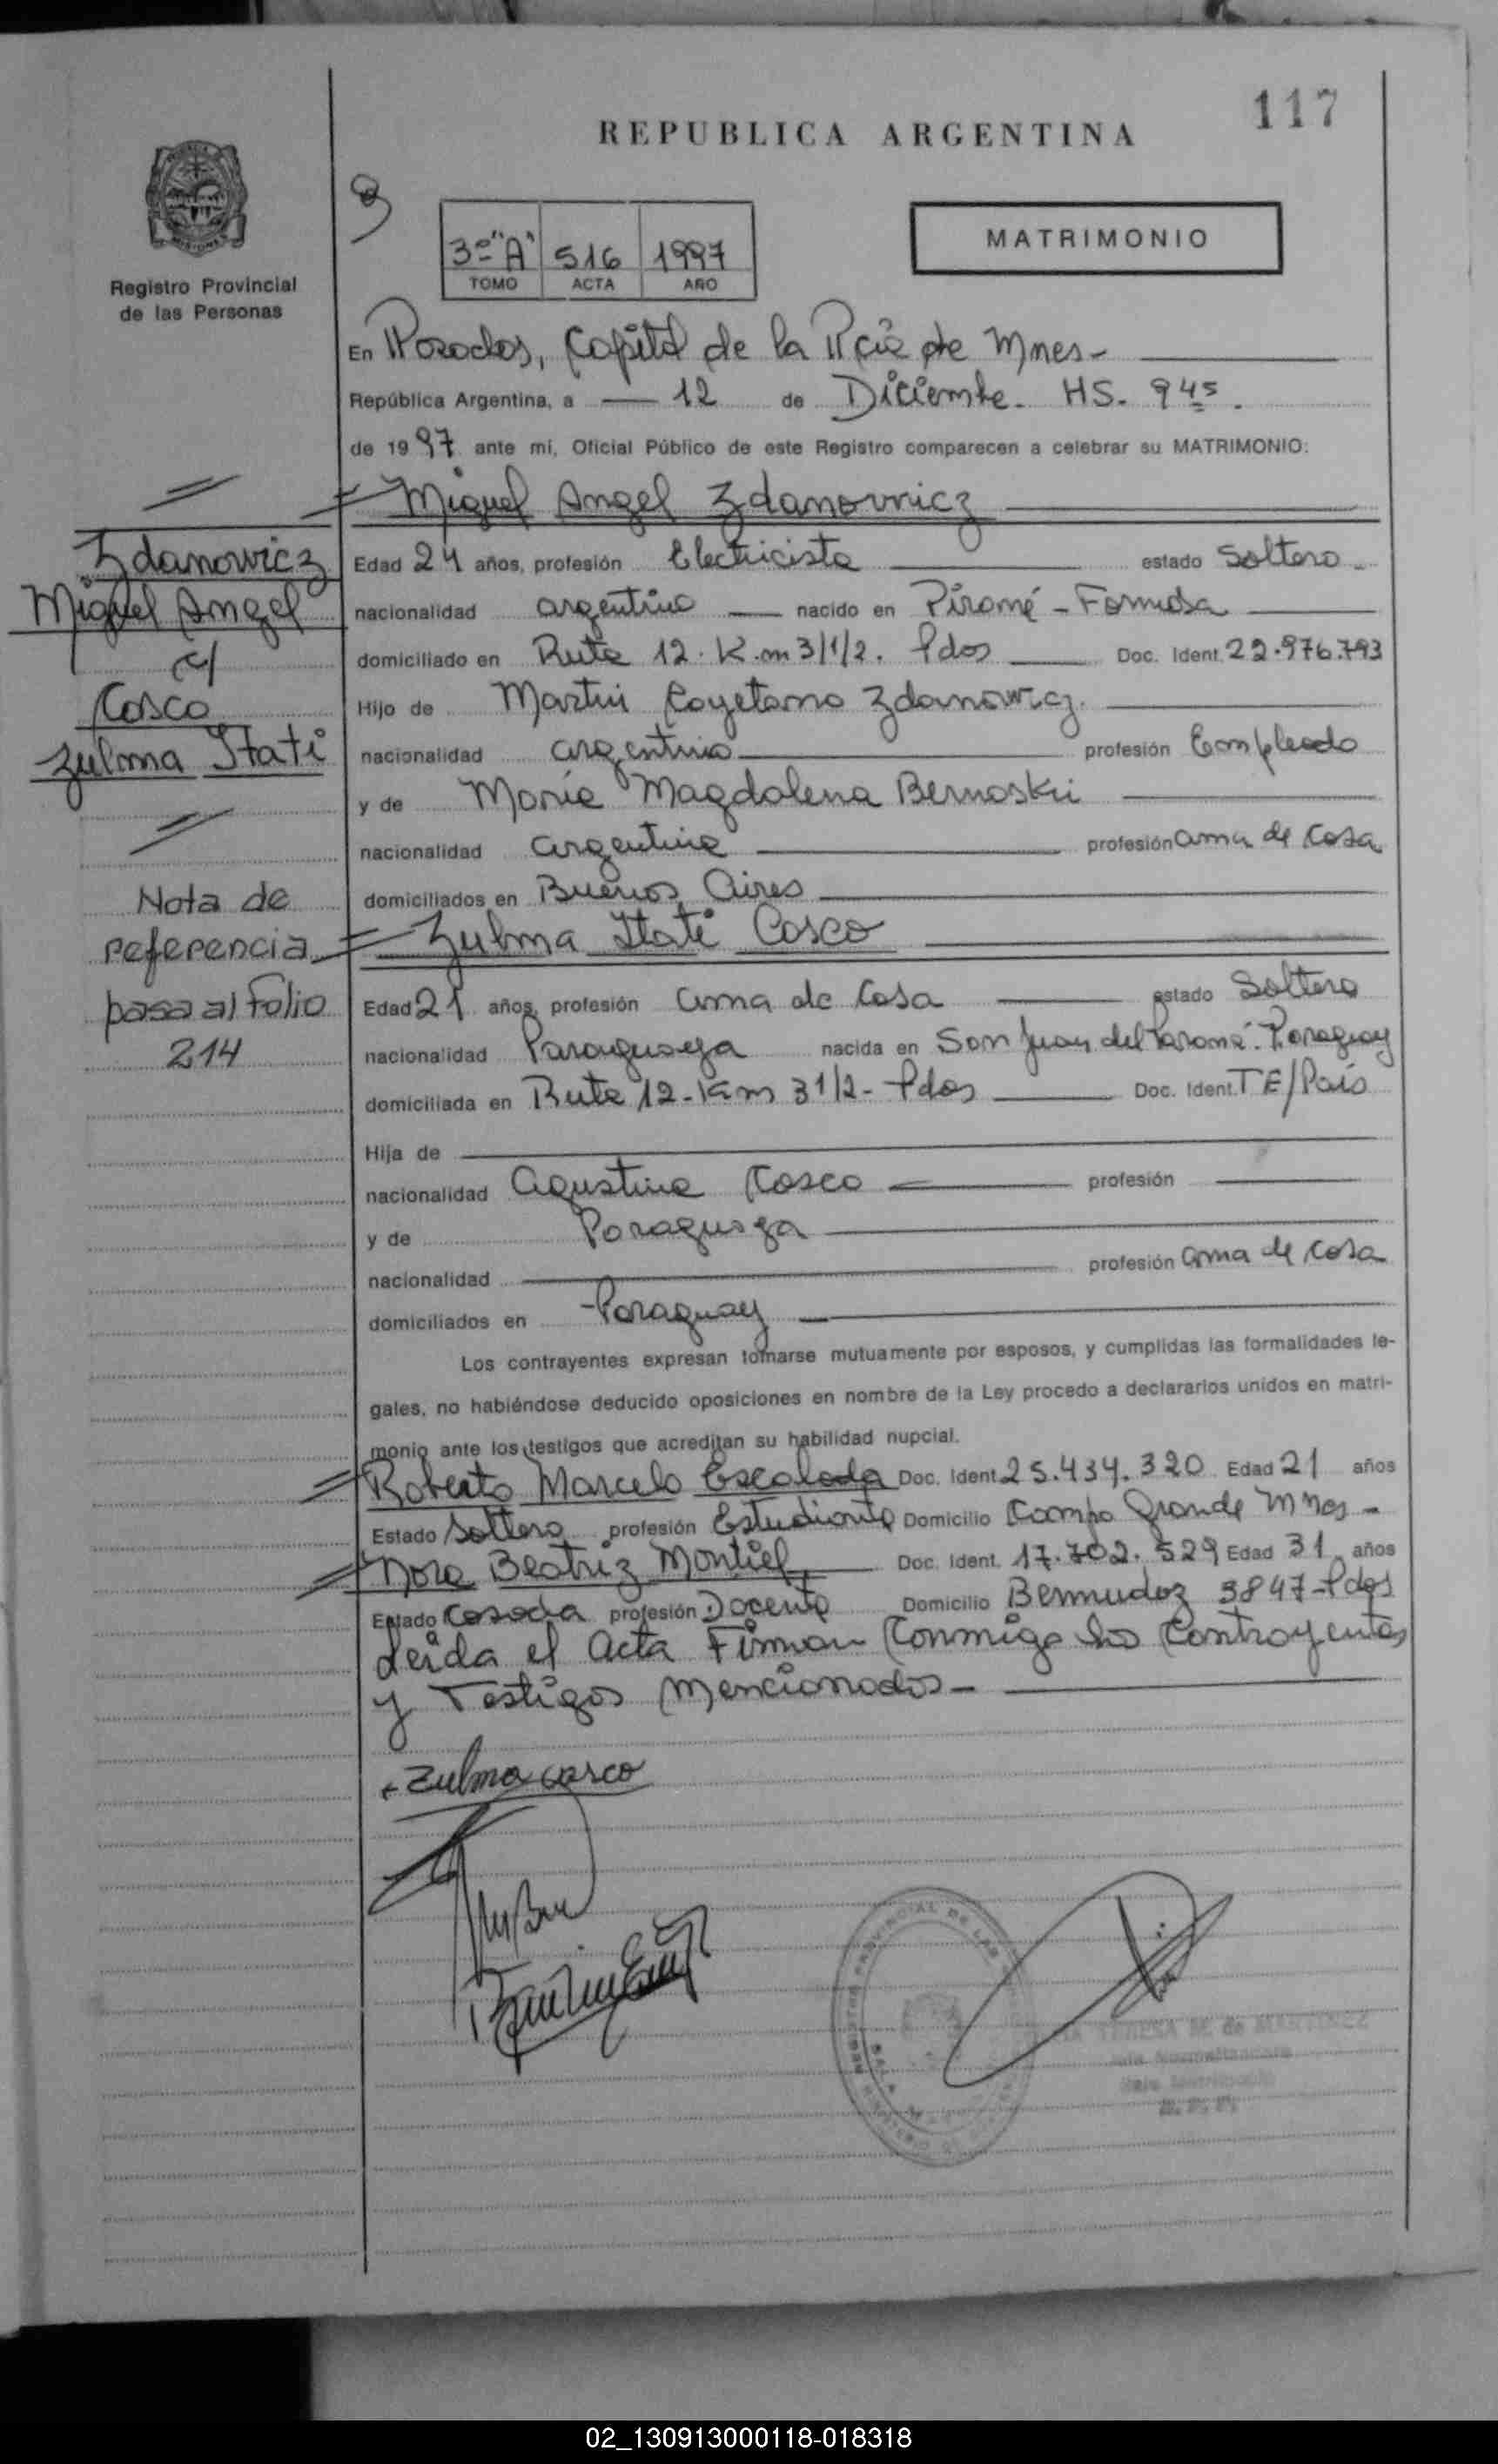 117
REPUBLICA ARGENTINA
Registro Provincial
de las Personas
3º "A" 516 1997
TOMO ACTA AÑO
MATRIMONIO
En Posadas, Capital de la Pcia de Mnes-
República Argentina, a 12 de Diciembre. HS. 9 45.
de 1997 ante mí, Oficial Público de este Registro comparecen a celebrar su MATRIMONIO:
Miguel Angel Zdanowicz
Edad 24 años, profesión Electricista estado Soltero
nacionalidad argentino nacido en Pirané - Formosa
domiciliado en Ruta 12. K.m 3/1/2. Pdos Doc. Ident. 22.976.793
Hijo de Martin Cayetano Zdanowicz.
nacionalidad argentino profesión Empleado
y de Maria Magdalena Bernoski
nacionalidad argentina profesión ama de Casa
domiciliados en Buenos Aires
Zulma Itati Casco
Edad 21 años, profesión ama de Casa estado Soltera
nacionalidad Paraguaya nacida en San Juan del Paraná. Paraguay
domiciliada en Ruta 12-Km 31/2- Pdos Doc. Ident. TE/País
Hija de
nacionalidad Agustina Casco profesión
y de Paraguaya
nacionalidad profesión ama de Casa
domiciliados en -Paraguay
Los contrayentes expresan tomarse mutuamente por esposos, y cumplidas las formalidades le-
gales, no habiéndose deducido oposiciones en nombre de la Ley procedo a declararlos unidos en matri-
monio ante los testigos que acreditan su habilidad nupcial.
Roberto Marcelo Escalada Doc. Ident. 25.434.320 Edad 21 años
Estado Soltero profesión Estudiante Domicilio Campo Grande Mnes-
Nora Beatriz Montiel Doc. Ident. 17.702.529 Edad 31 años
Estado Casada profesión Docente Domicilio Bermudez 3847-Pdos
Leída el Acta Firman Conmigo los Contrayentes
y Testigos Mencionados-
Zdanowicz
Miguel Angel
c/
Casco
Zulma Itati
Nota de
referencia
pasa al Folio
214
Zulma casco
TERESA M. de MARTINEZ
02_130913000118-018318